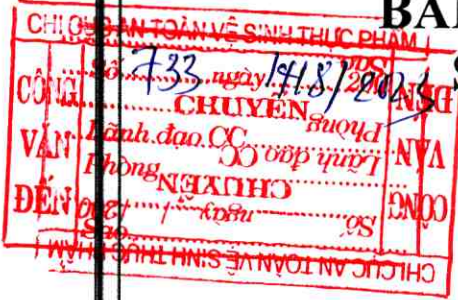 BAI
CHI CỤC AN TOÀN VỆ SINH THỰC PHẨM
CÔNG VĂN ĐẾN
Số 733 ngày 14/8/2023
CHUYỂN
Lãnh đạo CC
Phòng
CHI CỤC AN TOÀN VỆ SINH THỰC PHẨM
CÔNG VĂN ĐẾN
Số ngày / /200
CHUYỂN
Lãnh đạo CC
Phòng